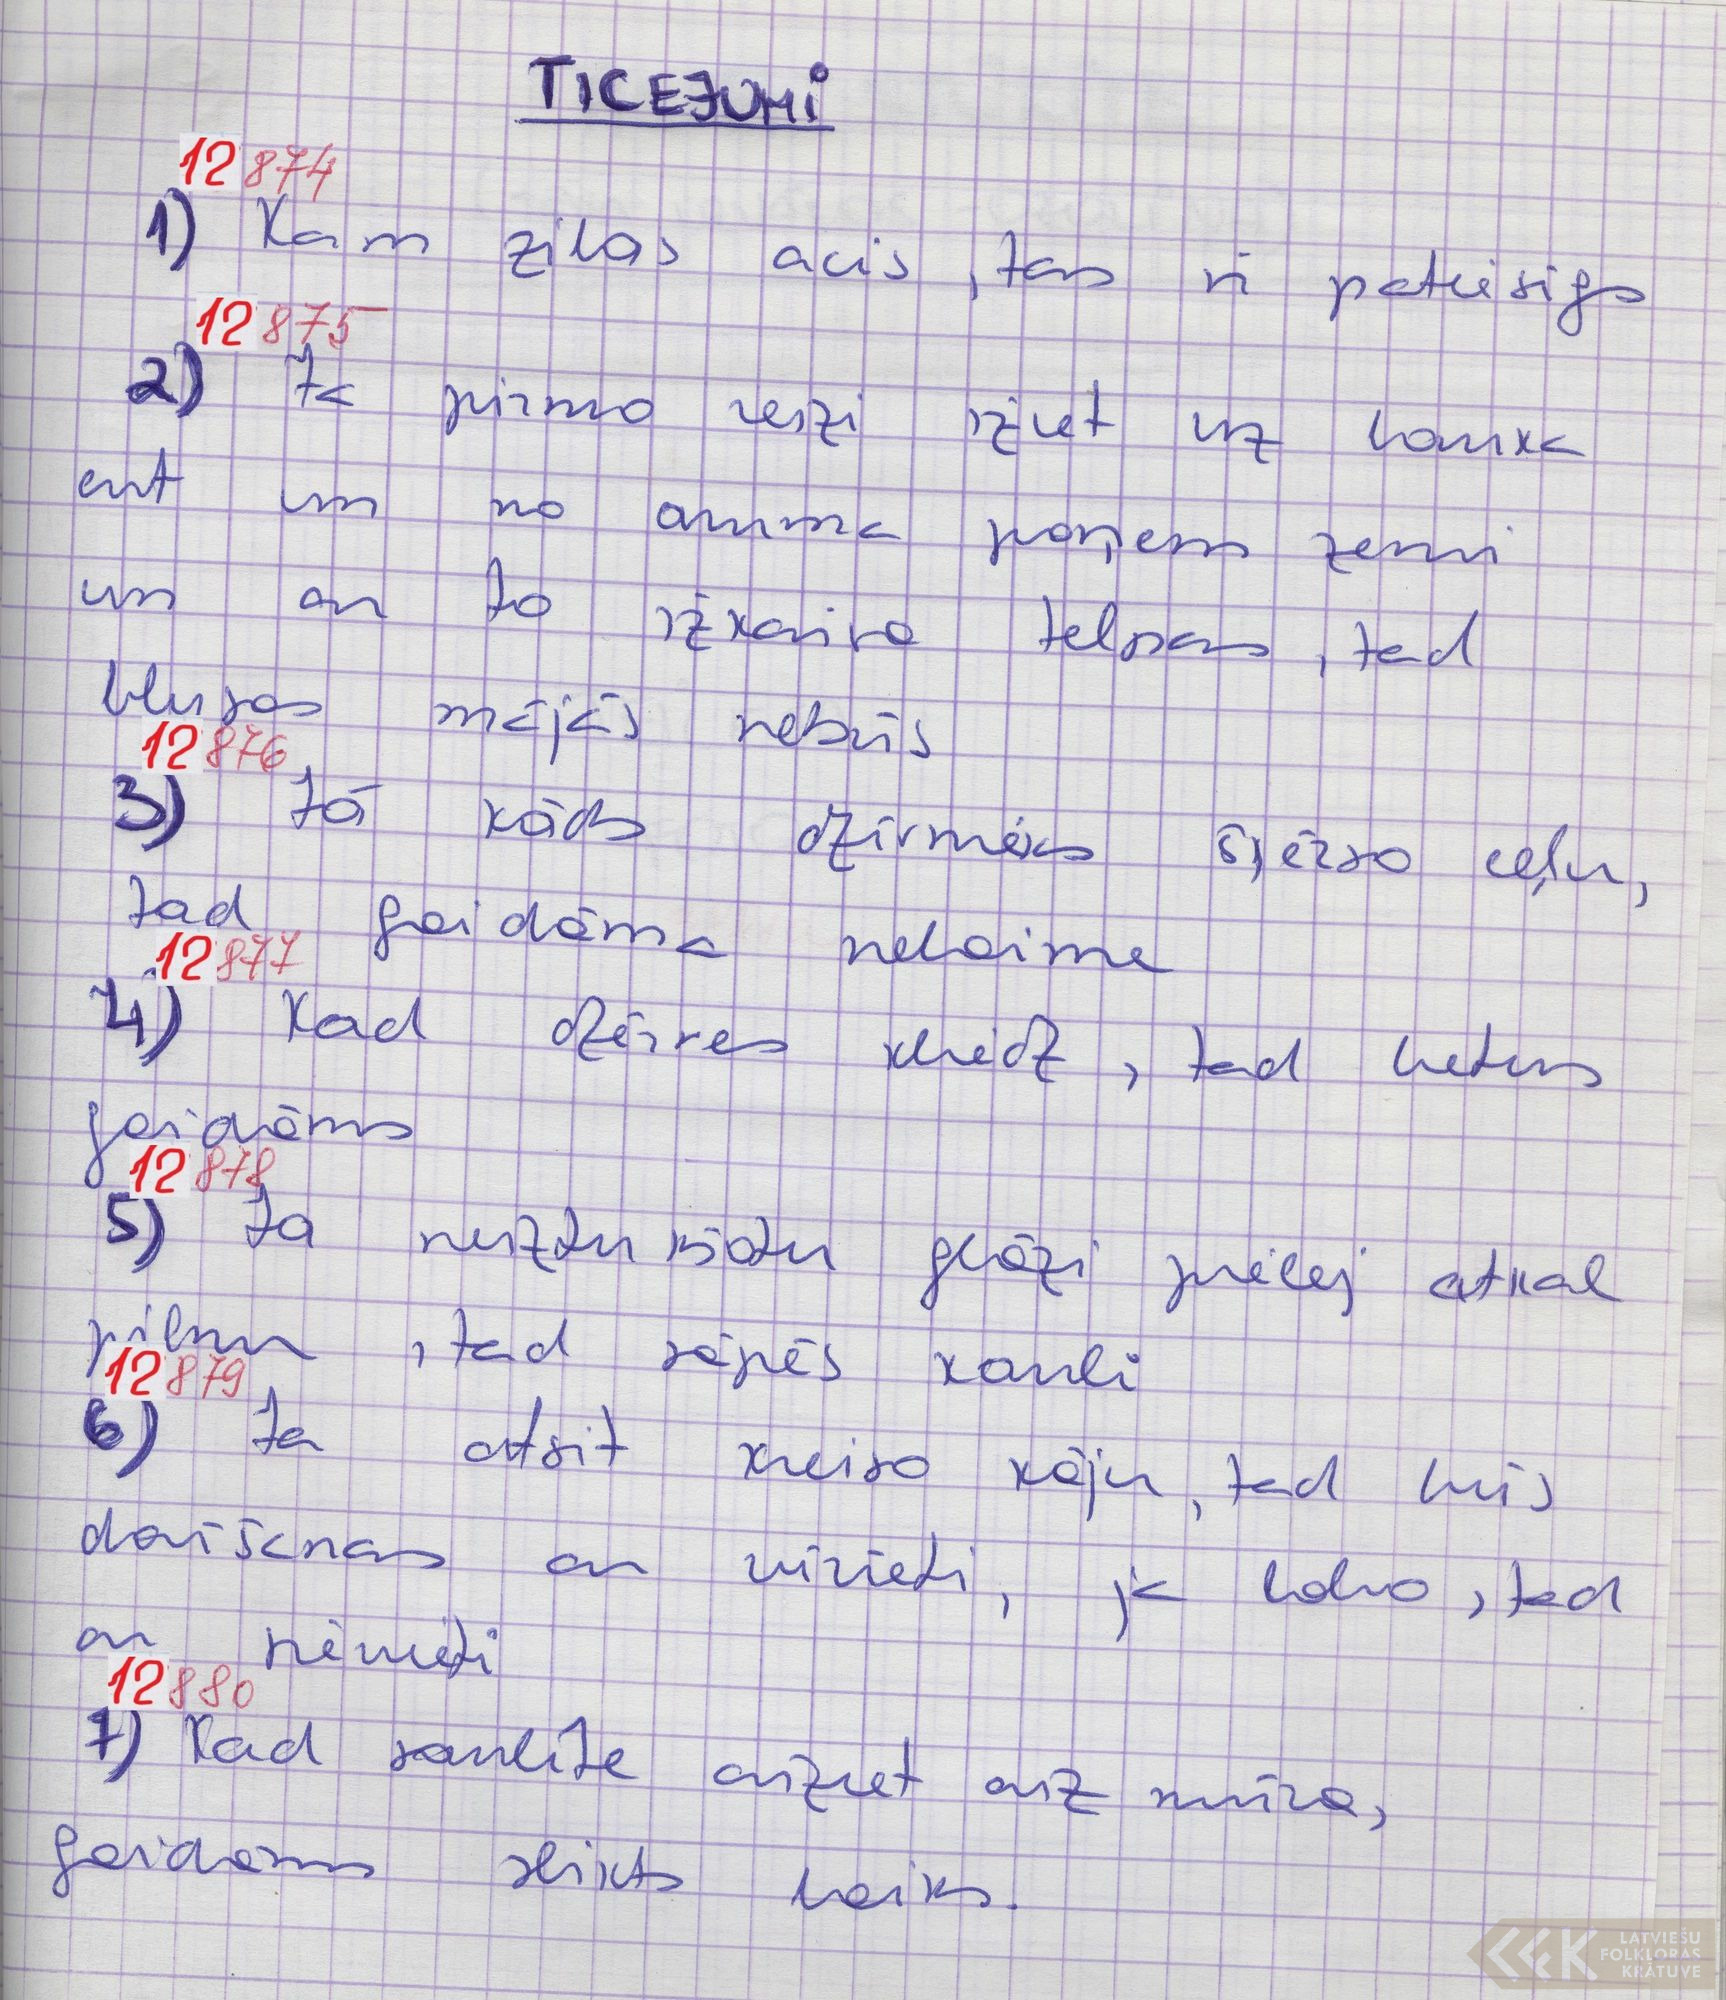 TICEJUMI
12 874
1) Kam zilas acis, tas ir patiesīgs
12 875
2) Ja pirmo reizi iziet uz lauka
art un no aruma paņem zemi
un ar to izkaisa telpas, tad
blusas mājās nebūs
12 876
3) Jā kāds dzīvnieks šķērso ceļu,
tad gaidāma nelaime
12 877
4) Kad dzērves kliedz, tad lietus
gaidāms
12 878
5) Ja neiztukšotu glāzi pielej atkal
pilnu, tad sāpēs kauli
12 879
6) Ja atsit kreiso kāju, tad būs
darīšanas ar vīrieti, ja labo, tad
ar sievieti
12 880
7) Kad saulīte aiziet aiz mūra,
gaidāms slikts laiks.
LATVIEŠU
FOLKLORAS
KRĀTUVE